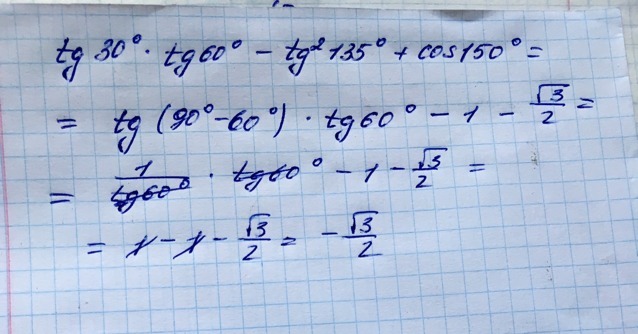 tg 30° · tg 60° - tg² 135° + cos 150° =
= tg (90° - 60°) · tg 60° - 1 - √3/2 =
= 1/tg 60° · tg 60° - 1 - √3/2 =
= 1 - 1 - √3/2 = - √3/2